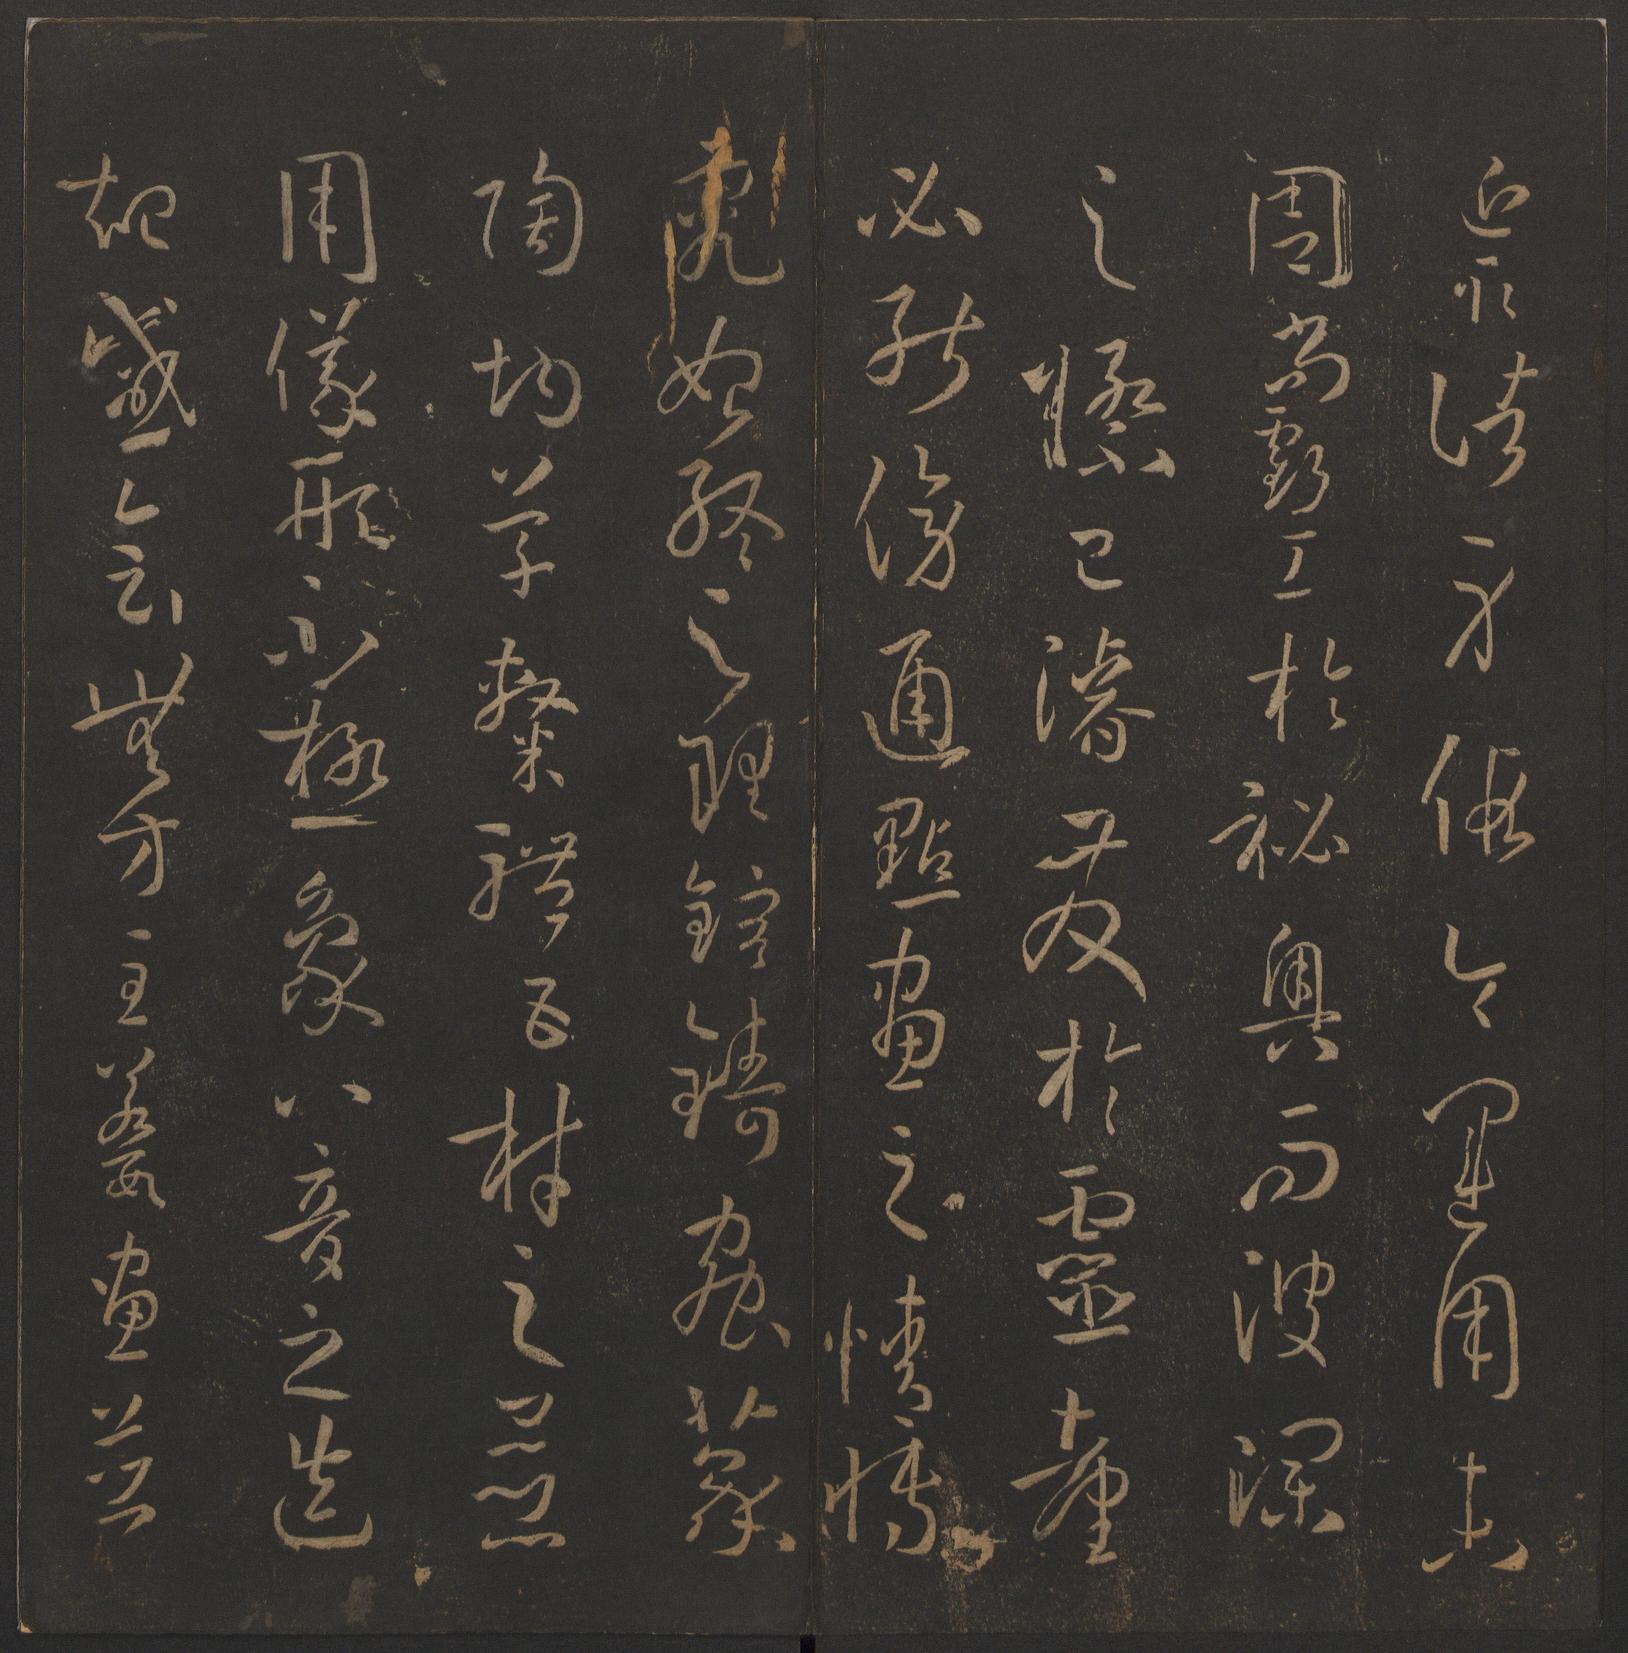 近取諸身假令運用未
周尚虧工於祕奧而波瀾
之際已濬發於靈臺
必能傍通點畫之情博
究始終之理鎔鑄蟲篆
陶均草隸體五材之並
用儀形不極象八音之迭
起感會無方至若數畫並